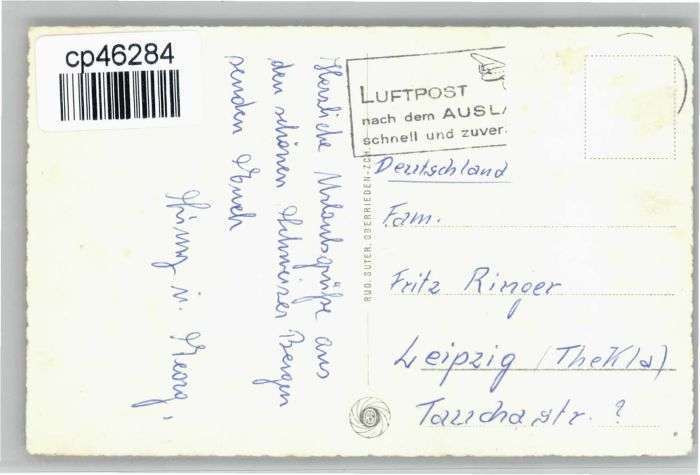 cp46284
LUFTPOST
nach dem AUSLA
schnell und zuver.
Herzliche Urlaubsgrüße aus
den schönen Schweizer Bergen
senden Euch
u. Georg,
RUD. SUTER, OBERRIEDEN-ZCH.
Deutschland
Fam.
Fritz Ringer
Leipzig (Thekla)
Tauchaerstr. ?